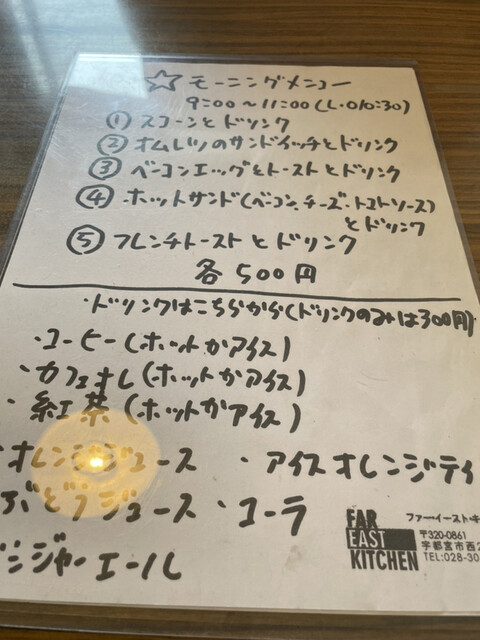 ☆モーニングメニュー
9:00~11:00(L.O10:30)
① スコーンとドリンク
② オムレツのサンドイッチとドリンク
③ ベーコンエッグとトーストとドリンク
④ ホットサンド(ベーコン、チーズ・トマトソース)
とドリンク
⑤ フレンチトーストとドリンク
各500円
・ドリンクはこちらから(ドリンクのみは300円)
・コーヒー(ホットかアイス)
・カフェオレ(ホットかアイス)
・紅茶(ホットかアイス)
オレンジジュース ・アイスオレンジティ
ぶどうジュース ・コーラ
ジンジャーエール
FAR
EAST
KITCHEN
ファー・イースト・キ
〒320-0861
宇都宮市西2
TEL:028-30